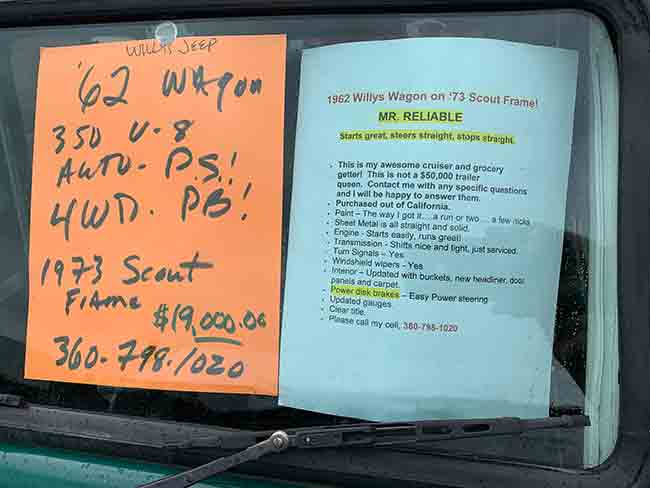 WILLYS JEEP
'62 WAGON
350 V-8
AUTO- P.S.!
4WD. PB!
1973 Scout
Frame
$19,000.00
360-798-1020
1962 Willys Wagon on '73 Scout Frame!
MR. RELIABLE
Starts great, steers straight, stops straight.
• This is my awesome cruiser and grocery
getter! This is not a $50,000 trailer
queen. Contact me with any specific questions
and I will be happy to answer them.
• Purchased out of California.
• Paint – The way I got it….a run or two… a few nicks
• Sheet Metal is all straight and solid.
• Engine - Starts easily, runs great!
• Transmission - Shifts nice and tight, just serviced.
• Turn Signals – Yes
• Windshield wipers - Yes
• Interior – Updated with buckets, new headliner, door
panels and carpet.
• Power disk brakes – Easy Power steering
• Updated gauges
• Clear title.
• Please call my cell, 360-798-1020